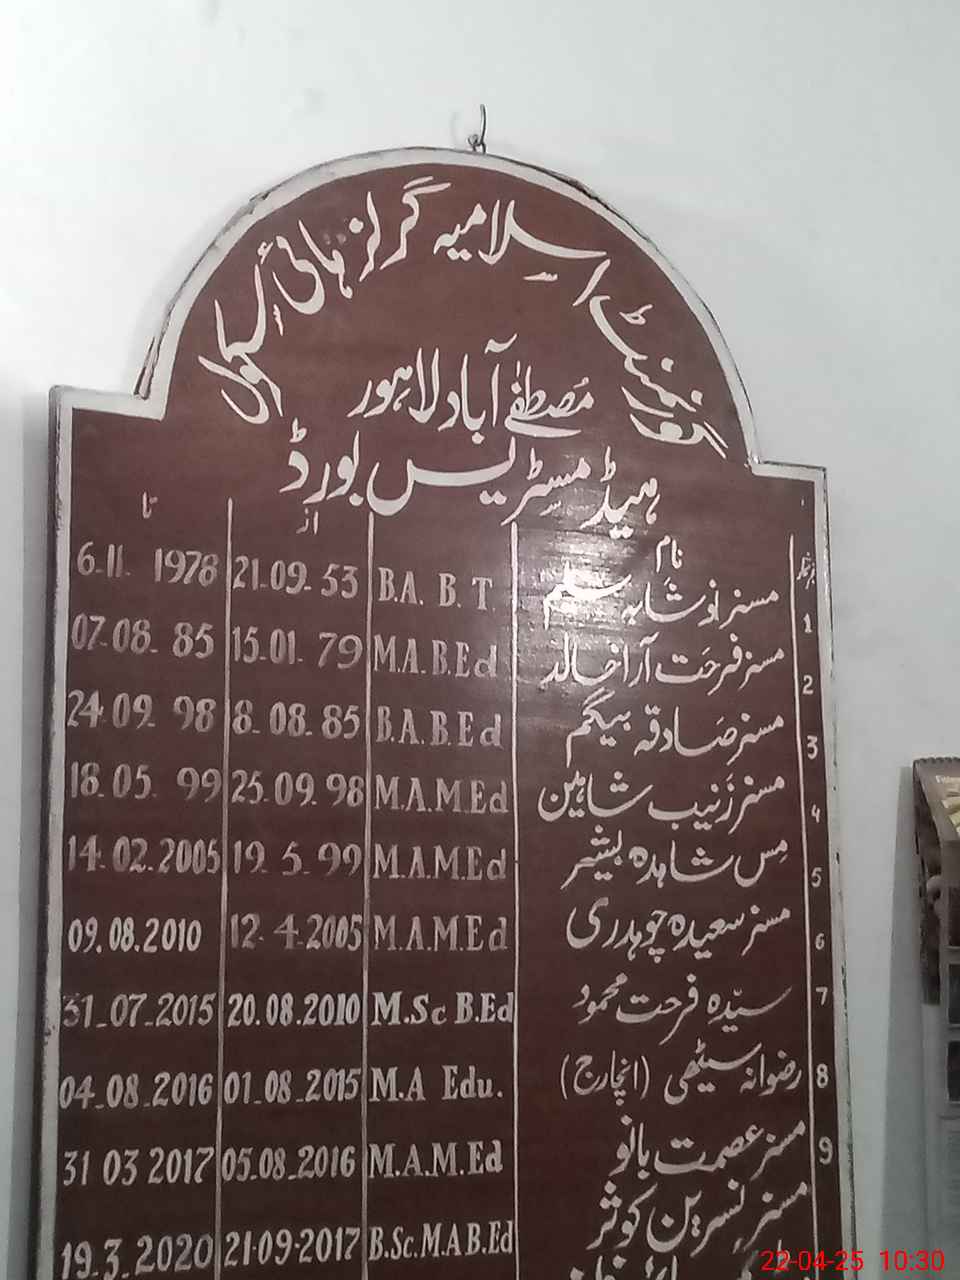 گورنمنٹ اسلامیہ گرلز ہائی سکول
مُصطفٰے آباد لاہور
ہیڈ مسٹریس بورڈ
نمبر شمار نام از تا
1 مسز نوشابہ سلیم B.A. B.T 21.09.53 6.11.1978
2 مسز فرحت آرا خالد M.A.B.Ed 15.01.79 07.08.85
3 مسز صادقہ بیگم B.A.B.Ed 8.08.85 24.09.98
4 مسز زینب شاہین M.A.M.Ed 25.09.98 18.05.99
5 مس شاہدہ بشیر M.A.M.Ed 19.5.99 14.02.2005
6 مسز سعیدہ چوہدری M.A.M.Ed 12.4.2005 09.08.2010
7 سیّدہ فرحت محمود M.Sc B.Ed 20.08.2010 31_07_2015
8 رضوانہ سیٹھی (انچارج) M.A Edu. 01_08_2015 04_08_2016
9 مسز عصمت بانو M.A.M.Ed 05.08_2016 31 03 2017
مسز نسرین کوثر B.Sc.M.A B.Ed 21-09-2017 19.3.2020
22-04-25 10:30